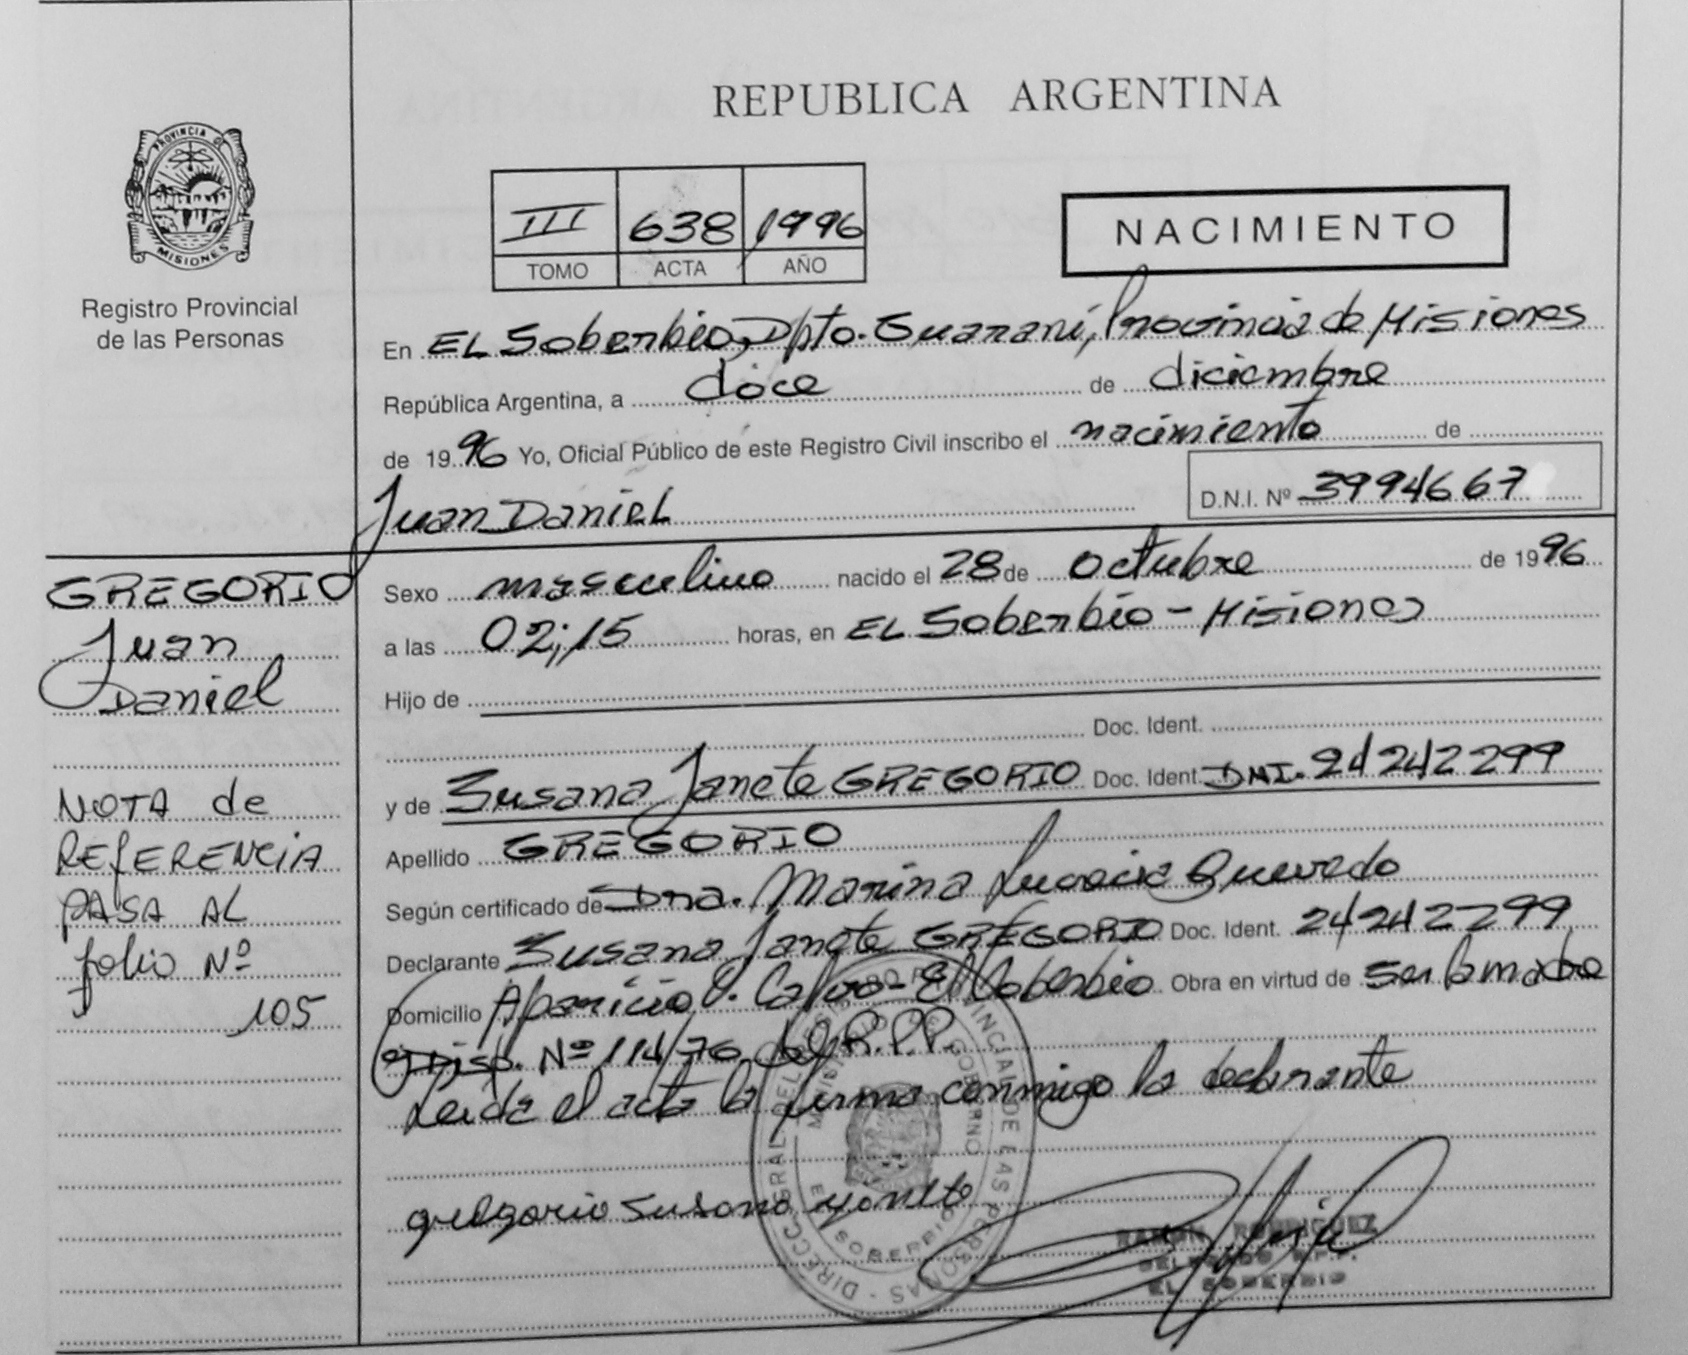 REPUBLICA ARGENTINA
PROVINCIA DE
MISIONES
Registro Provincial
de las Personas
III 638 1996
TOMO ACTA AÑO
NACIMIENTO
En EL Soberbio, Dpto. Guaraní, Provincia de Misiones
República Argentina, a doce de diciembre
de 1996 Yo, Oficial Público de este Registro Civil inscribo el nacimiento de
Juan Daniel D.N.I. Nº 3994667
GREGORIO
Juan
Daniel
NOTA de
REfERENCiA
PASA AL
folio Nº
105
Sexo masculino nacido el 28 de Octubre de 1996
a las 02;15 horas, en EL Soberbio - Misiones
Hijo de
Doc. Ident.
y de Susana Janete GREGORIO Doc. Ident. DNI. 24242299
Apellido GREGORIO
Según certificado de Dra. Marina Lucrecia Quevedo
Declarante Susana Janete GREGORIO Doc. Ident. 24242299
Domicilio Aparicio Calvo - El Soberbio Obra en virtud de ser la madre
Disp. Nº 114/76 R.P.P.
Leida el acta la firma conmigo la declarante
gregorio Susana yanete
RAMON RODRIGUEZ
DELEGADO R.P.P.
EL SOBERBIO